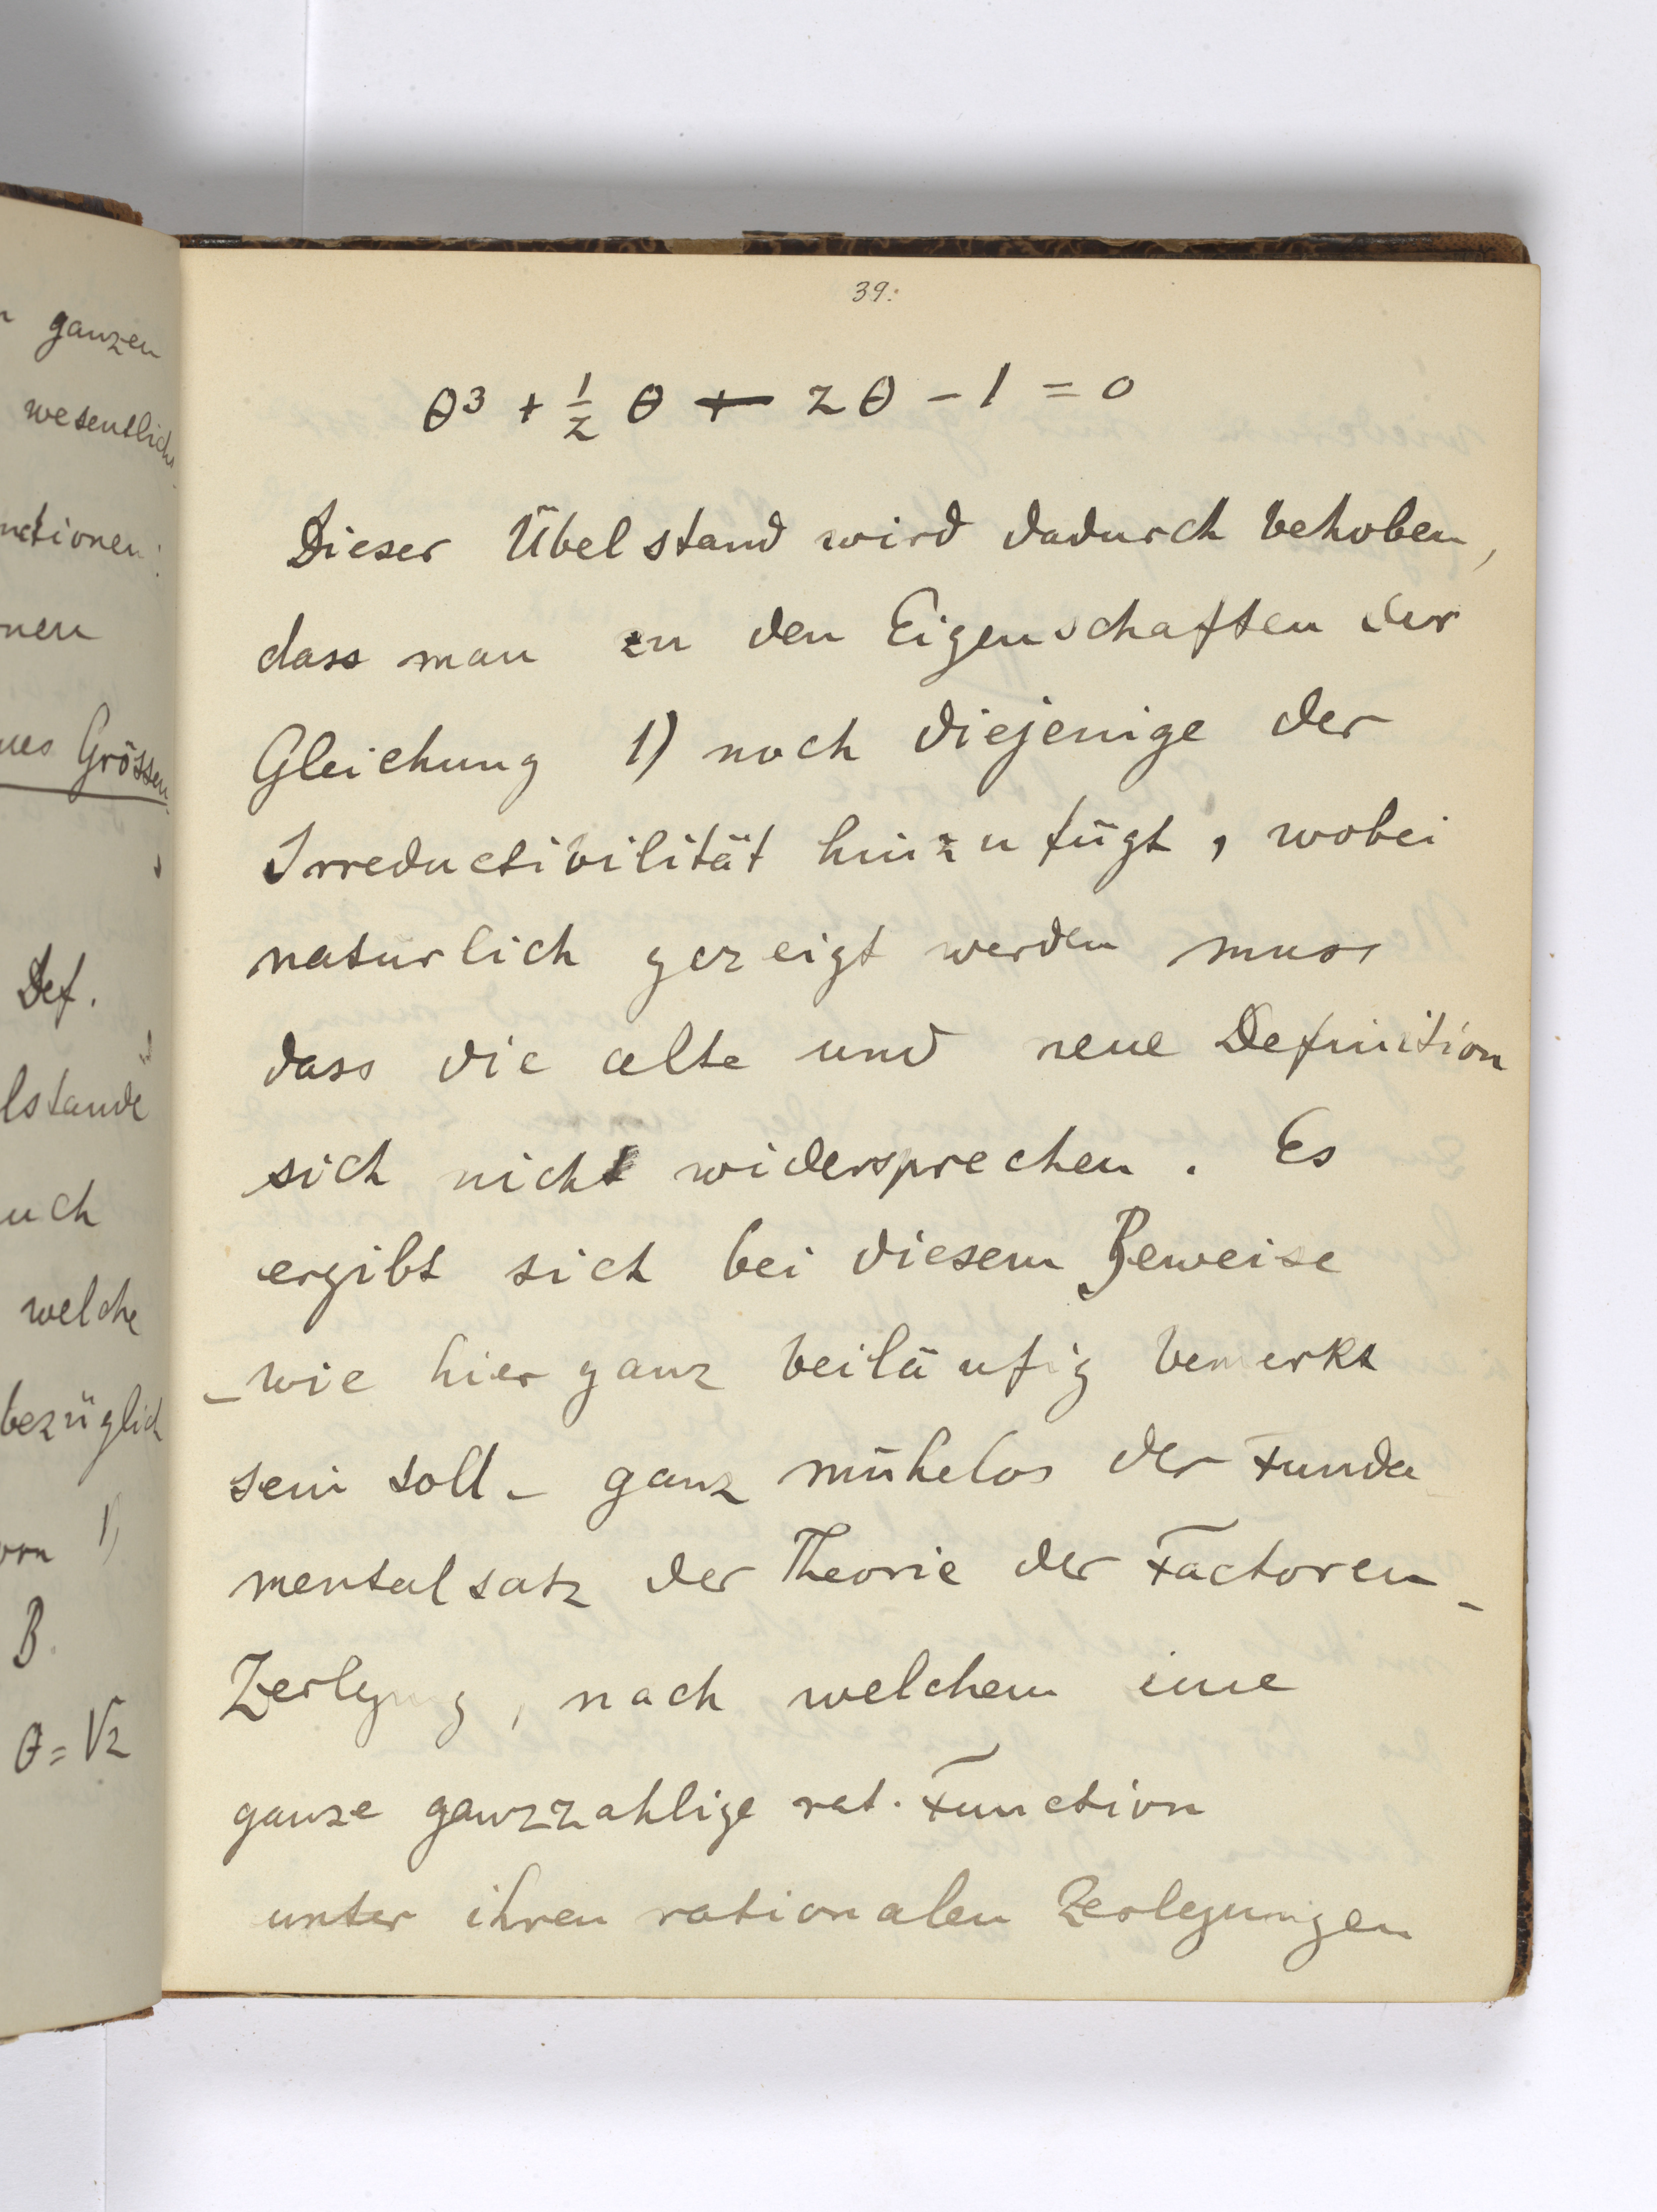 ganzen
wesentlich
nctionen
nen
nes Grössen
Def.
lstande
uch
welche
bezüglich
1)
B
θ = √2
39.
θ³ + ½ θ + 2θ − 1 = 0
Dieser Übelstand wird dadurch behoben,
dass man zu den Eigenschaften der
Gleichung 1) noch diejenige der
Irreductibilität hinzufügt, wobei
naturlich gezeigt werden muss
dass die alte und neue Definition
sich nicht widersprechen. Es
ergibt sich bei diesem Beweise
– wie hier ganz beiläufig bemerkt
sein soll – ganz mühelos der Funda
mentalsatz der Theorie der Factoren-
Zerlegung, nach welchem eine
ganze ganzzahlige rat. Function
unter ihren rationalen Zerlegungen